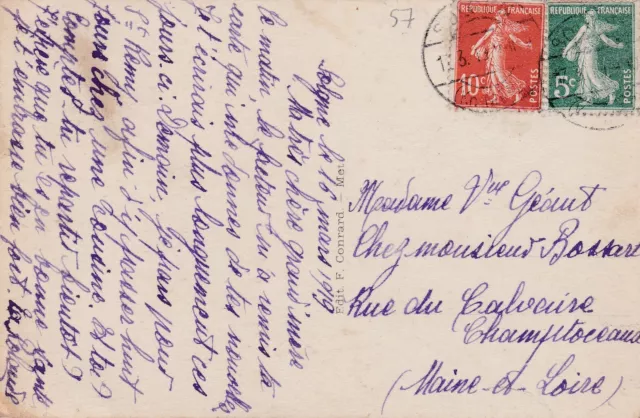 57
RÉPUBLIQUE FRANÇAISE
10c
POSTES
RÉPUBLIQUE FRANÇAISE
5c
POSTES
le 16 mars 1919
Ma très chère grand'mère
le matin, le facteur m'a remis ta
carte qui me donnes de tes nouvelles
Je t'écrirais plus longuement ces
jours ci. Demain, je pars pour
St Remy afin d'y passer huit
jours chez une cousine. Et toi
comptes tu repartir bientôt ?
J'espère que tu es en bonne santé
je t'embrasse bien fort.
Edit. F. Conrard. - Metz
Madame Vve Géant
Chez monsieur Bossard
Rue du Calvaire
Champtoceaux
(Maine-et-Loire)